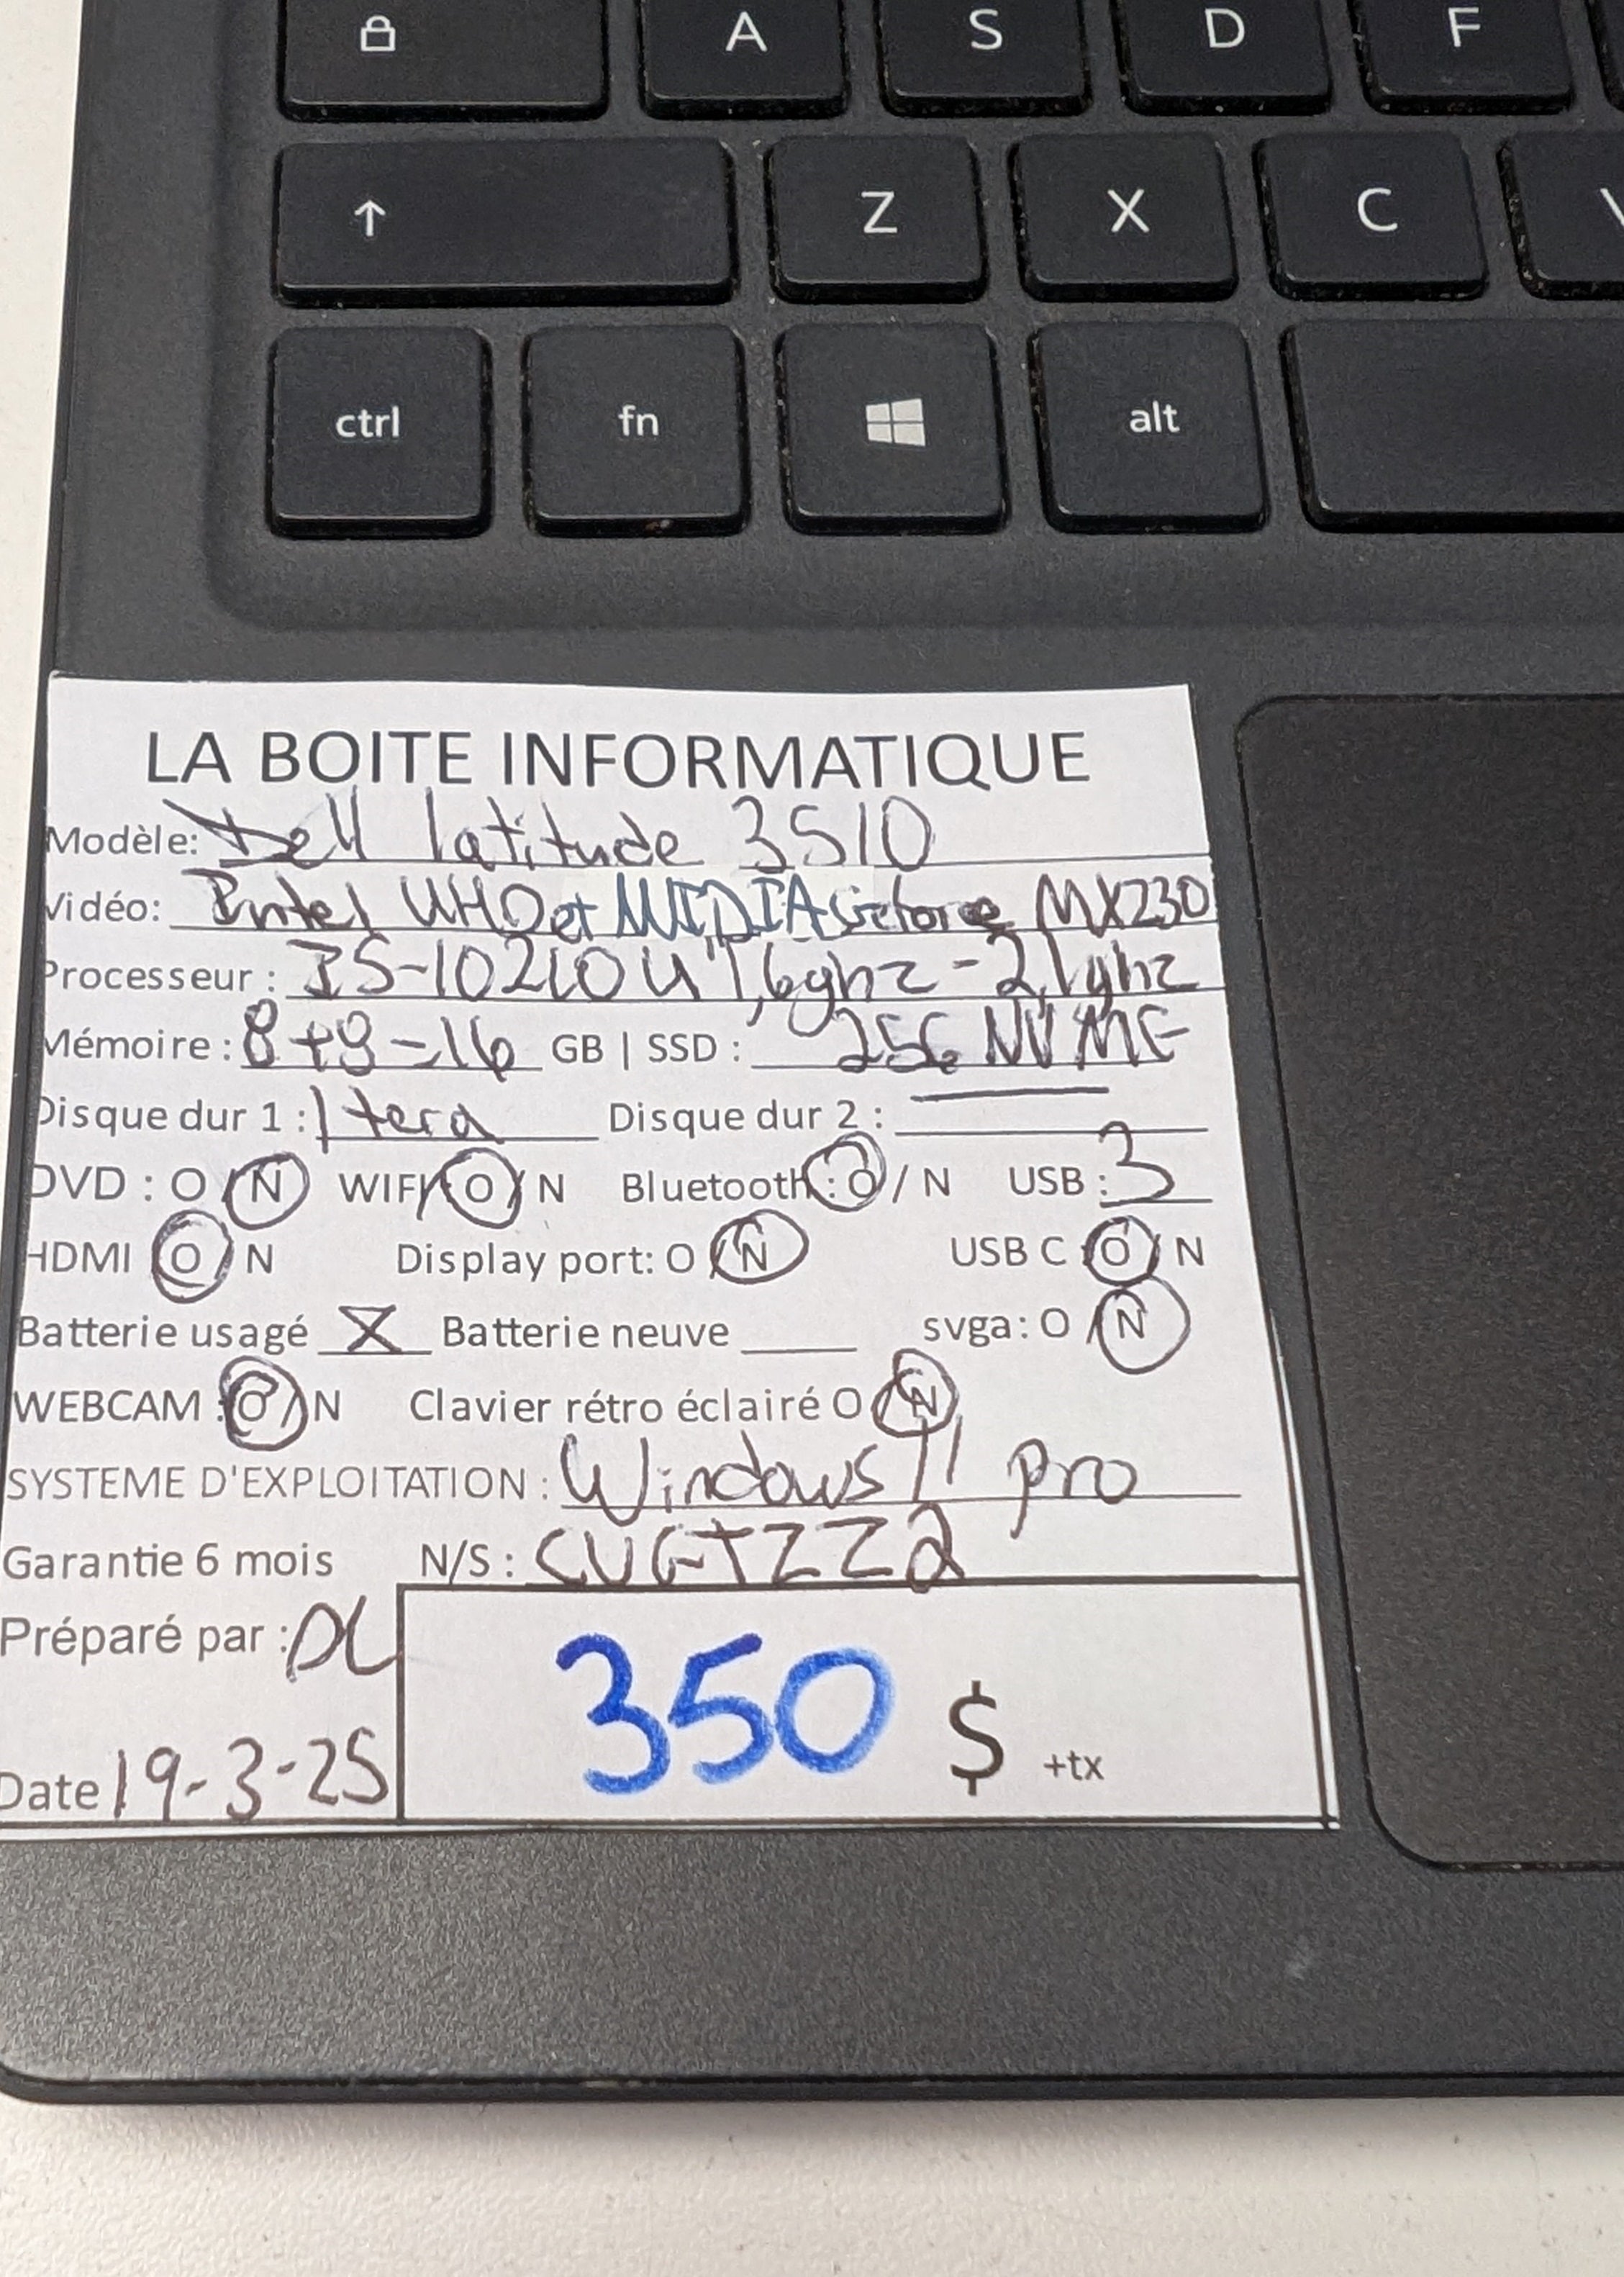 A S D F
Z X C
ctrl fn alt
LA BOITE INFORMATIQUE
Modèle: Dell latitude 3510
Vidéo: Intel UHD et NVIDIA Geforce MX230
Processeur : I5-10210U 1,6ghz - 2,1ghz
Mémoire : 8+8=16 GB | SSD : 256 NVME
Disque dur 1 : 1 tera Disque dur 2 :
DVD : O / N WIFI O / N Bluetooth : O / N USB : 3
HDMI O / N Display port: O / N USB C O / N
Batterie usagé X Batterie neuve svga: O / N
WEBCAM : O / N Clavier rétro éclairé O / N
SYSTEME D'EXPLOITATION : Windows 11 pro
Garantie 6 mois N/S :
Préparé par :
Date 19-3-25
350 $ +tx